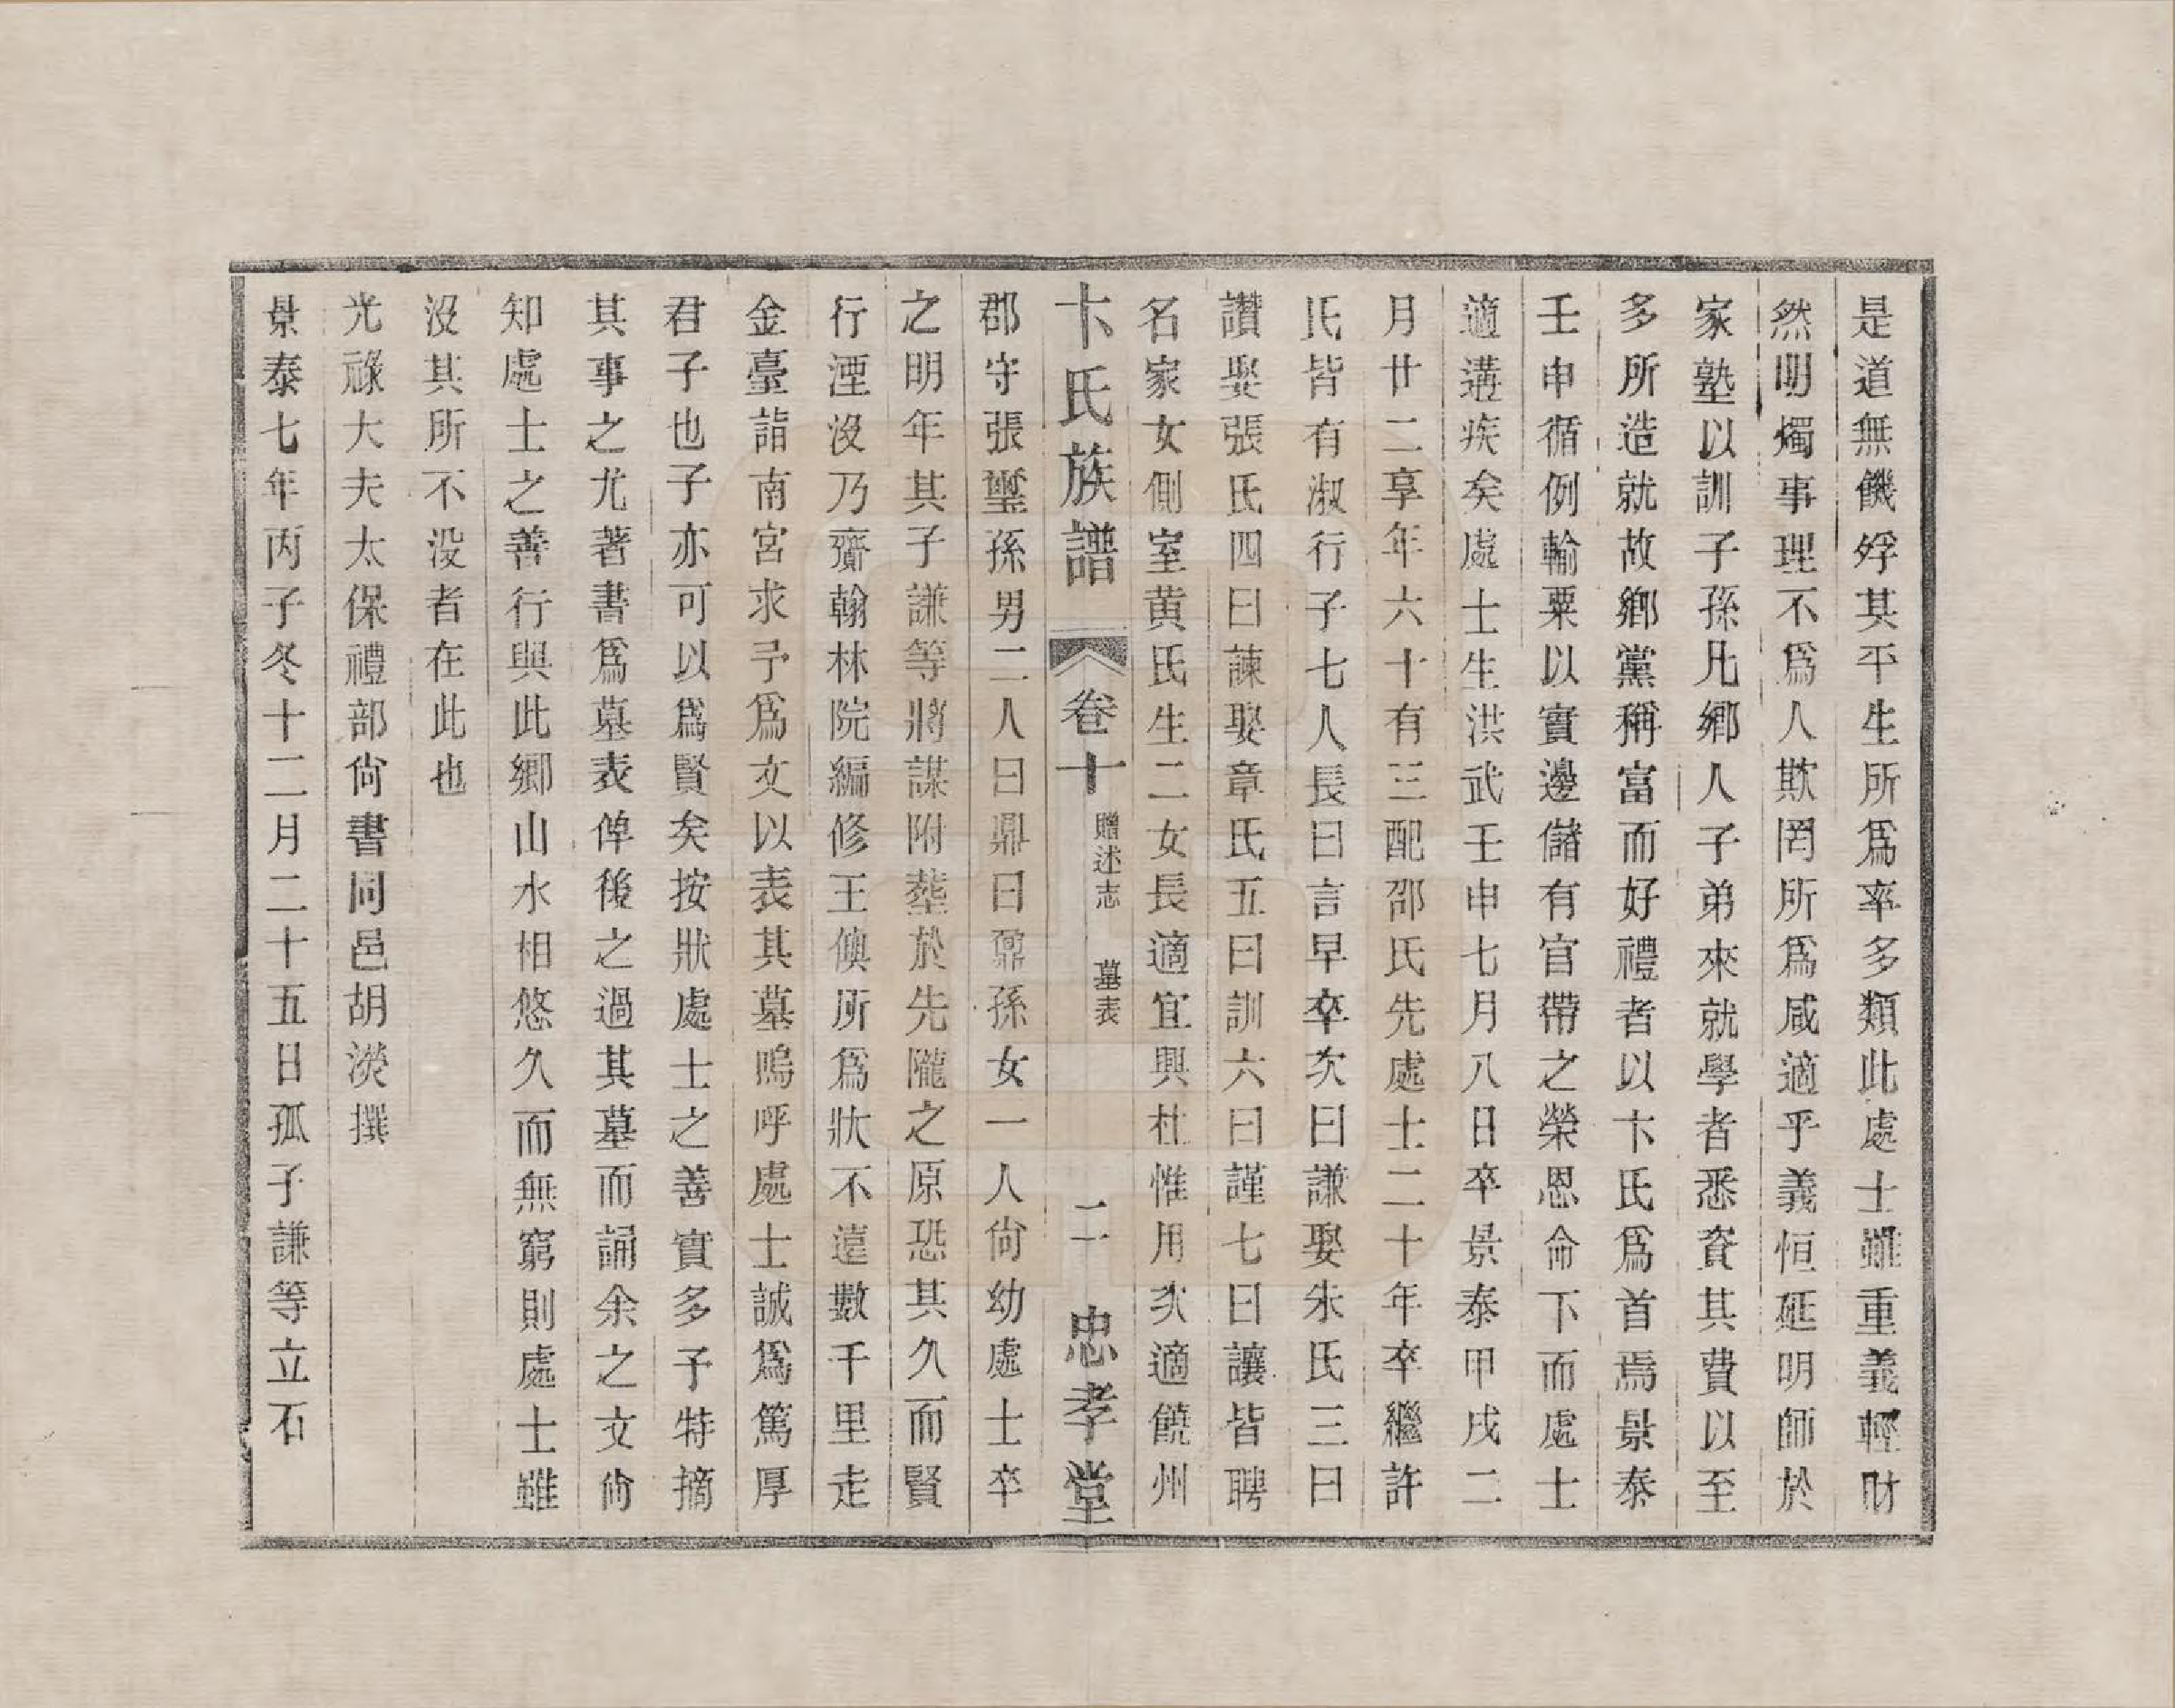 是道無饑殍其平生所爲率多類此處士雖重義輕財
然明燭事理不爲人欺罔所爲咸適乎義恒延明師於
家塾以訓子孫凡鄉人子弟來就學者悉資其費以至
多所造就故鄉黨稱富而好禮者以卞氏爲首焉景泰
壬申循例輸粟以實邊儲有官帶之榮恩命下而處士
適遘疾矣處士生洪武壬申七月八日卒景泰甲戌二
月廿二享年六十有三配邵氏先處士二十年卒繼許
氏皆有淑行子七人長曰言早卒次曰謙娶朱氏三曰
讚娶張氏四曰諫娶章氏五曰訓六曰謹七曰讓皆聘
名家女側室黄氏生二女長適宜興杜惟用次適饒州
卞氏族譜 卷十 贈述志 墓表 二 忠孝堂
郡守張璽孫男二人曰鼎曰鼐孫女一人尙幼處士卒
之明年其子謙等將謀附塟於先隴之原恐其久而賢
行湮沒乃齎翰林院編修王㒞所爲狀不遠數千里走
金臺詣南宮求予爲文以表其墓嗚呼處士誠爲篤厚
君子也子亦可以爲賢矣按狀處士之善實多予特摘
其事之尤著書爲墓表俾後之過其墓而誦余之文尙
知處士之善行與此鄉山水相悠久而無窮則處士雖
沒其所不没者在此也
光祿大夫太保禮部尙書同邑胡濙撰
景泰七年丙子冬十二月二十五日孤子謙等立石